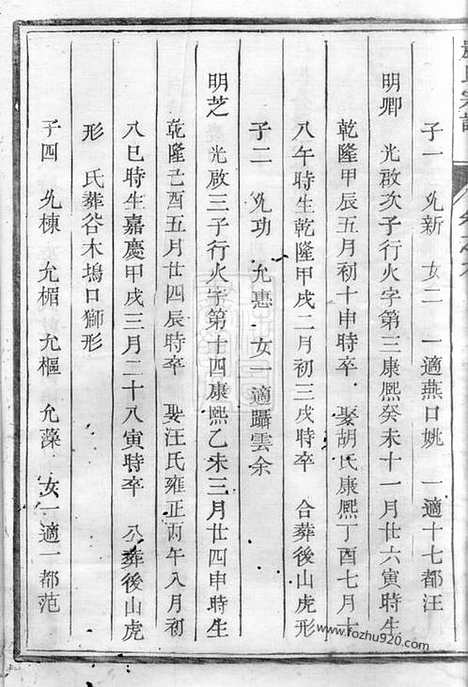 子一 允新 女二 一適燕口姚 一適十七都汪
明卿 光啟次子行火字第三康熙癸未十一月廿六寅時生
乾隆甲辰五月初十申時卒 娶胡氏康熙丁酉七月十
八午時生乾隆甲戌二月初三戌時卒 合葬後山虎形
子二 允功 允惠 女一適躡雲余
明芝 光啟三子行火字第十四康熙乙未三月廿四申時生
乾隆己酉五月廿四辰時卒 娶汪氏雍正丙午八月初
八巳時生嘉慶甲戌三月二十八寅時卒 公葬後山虎
形 氏葬谷木塢口獅形
子四 允棟 允楣 允樞 允藻 女一適一都范
www.fozhu920.com